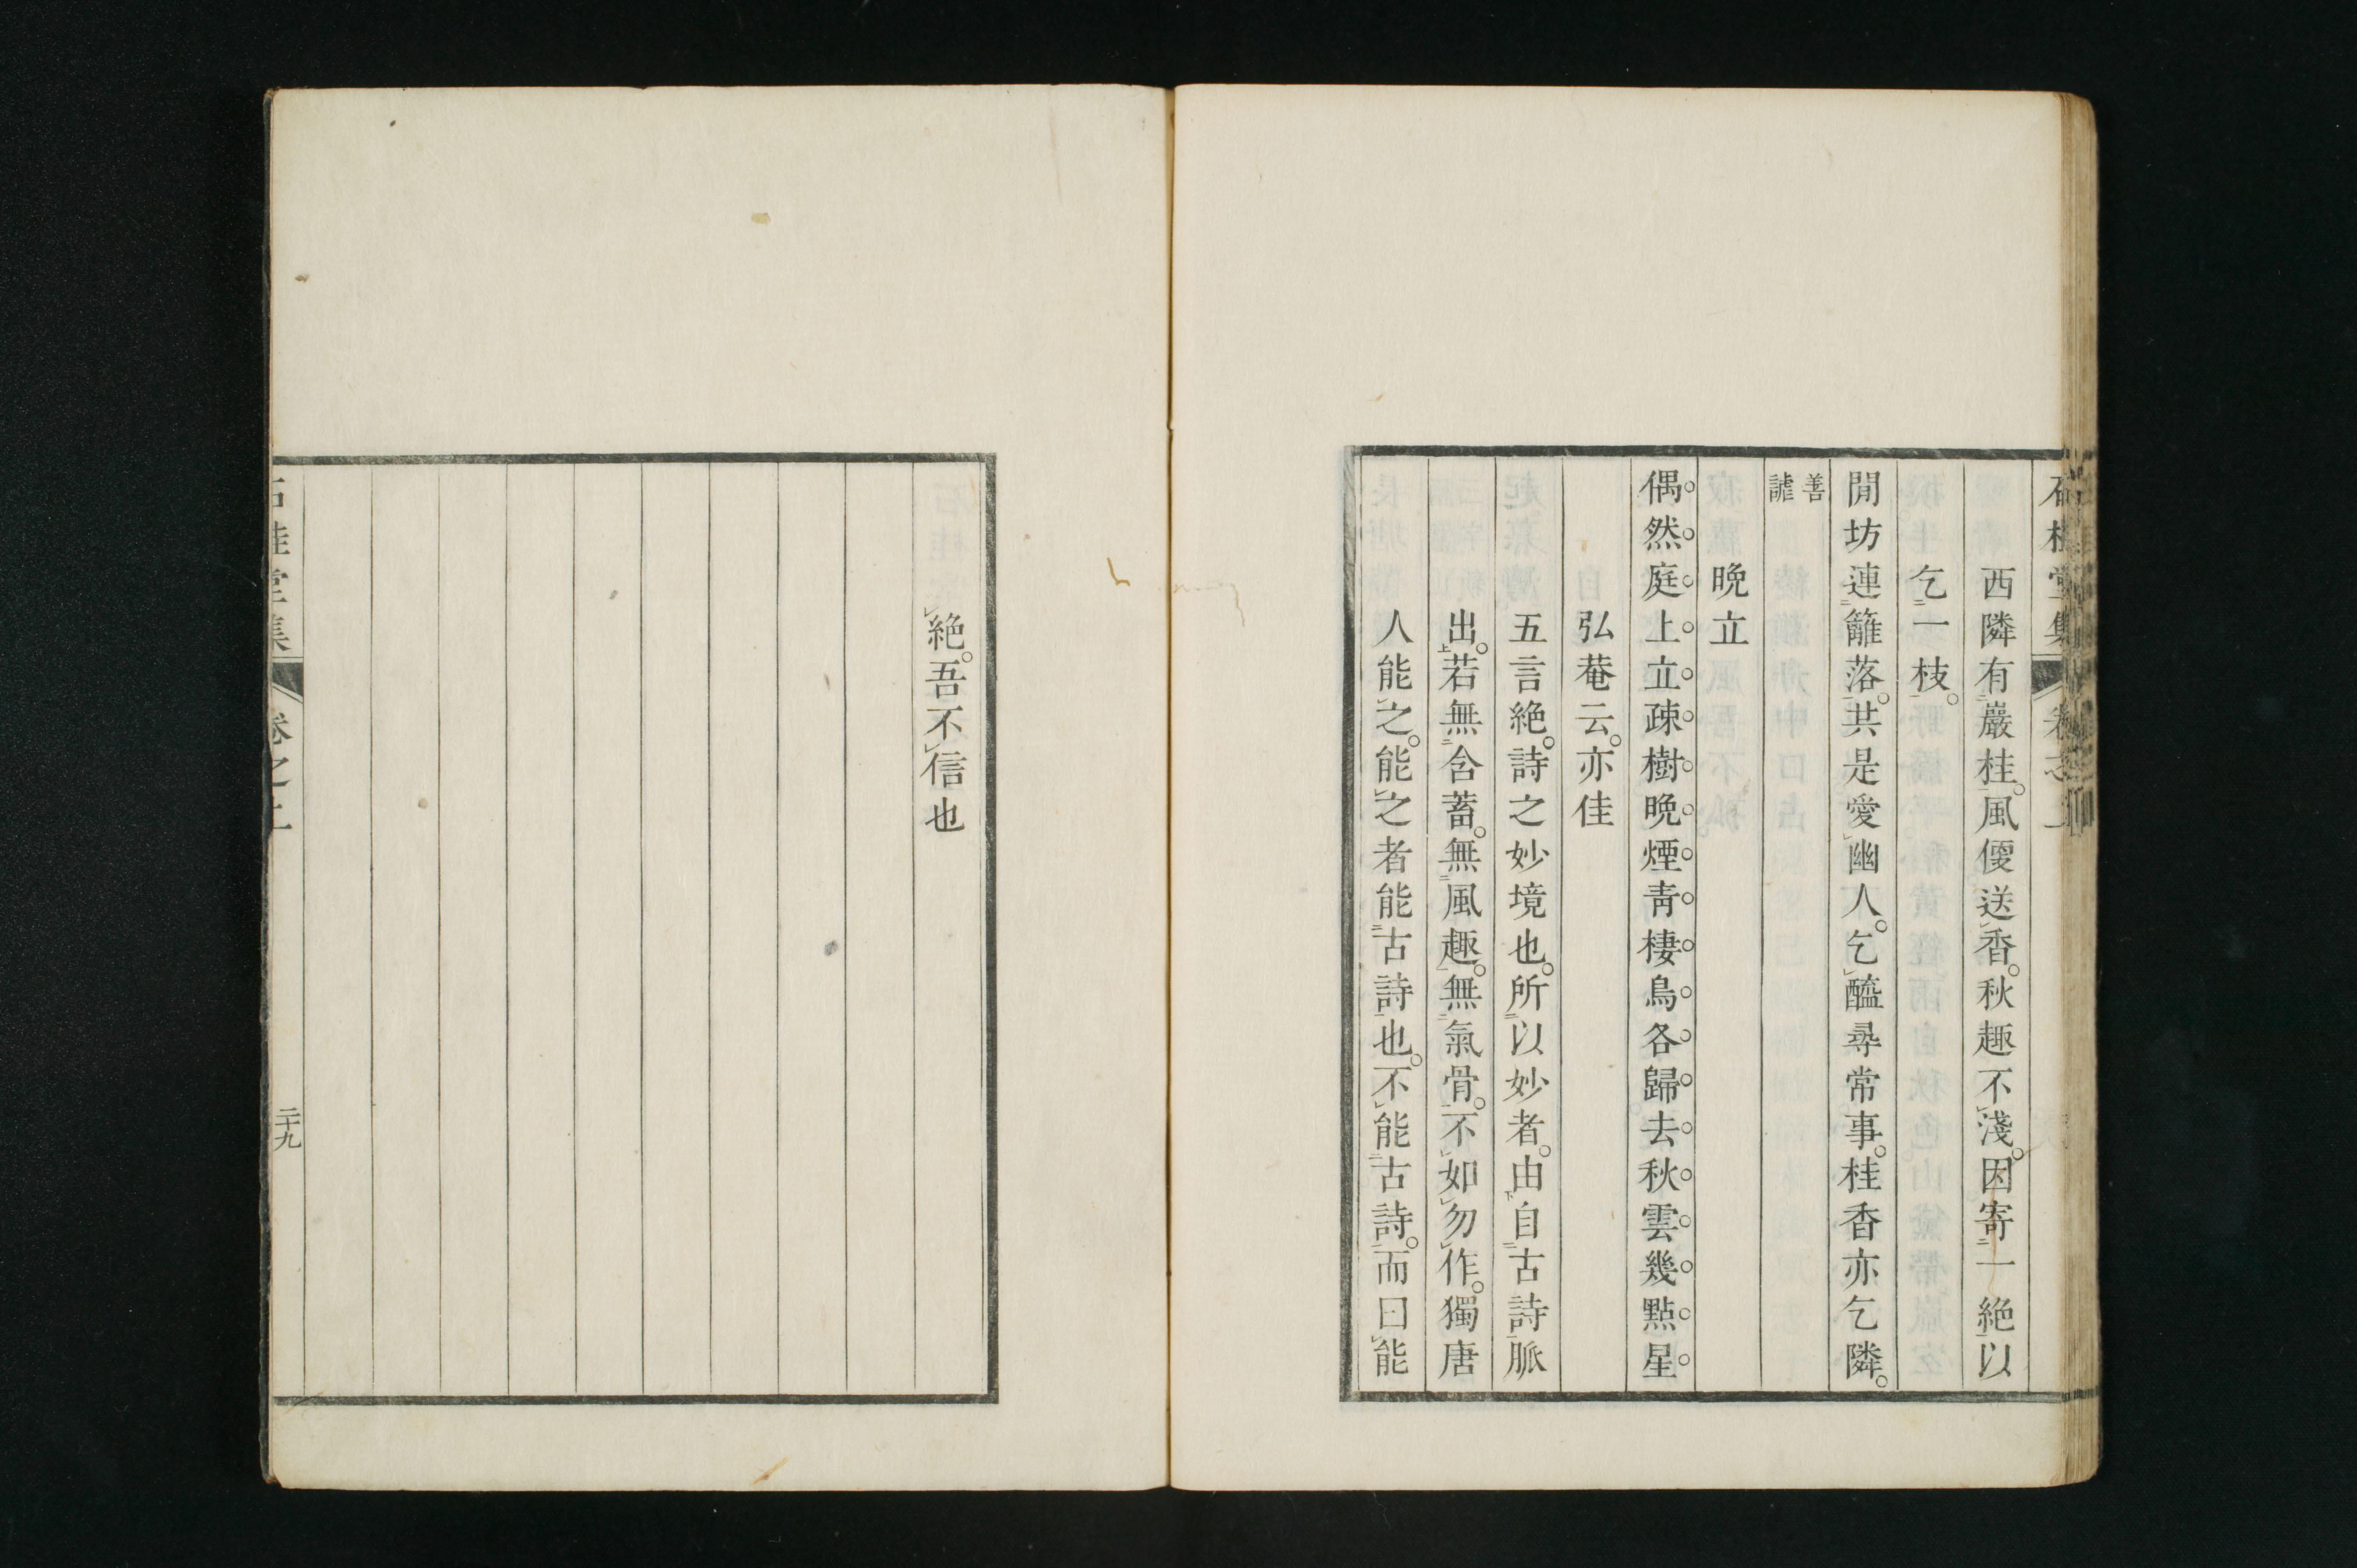 西隣有巖桂。風便送香。秋趣不淺。因寄一絶以
乞一枝。
閒坊連籬落。共是愛幽人。乞醯尋常事。桂香亦乞隣。
善謔
晩立
偶然庭上立疎樹晩煙靑棲鳥各歸去秋雲幾點星
弘菴云。亦佳
五言絶。詩之妙境也。所以妙者。由自古詩脈
出。若無含蓄。無風趣。無氣骨。不如勿作。獨唐
人能之。能之者能古詩也。不能古詩。而曰能
絶。吾不信也
石桂堂集 卷之上
二十九